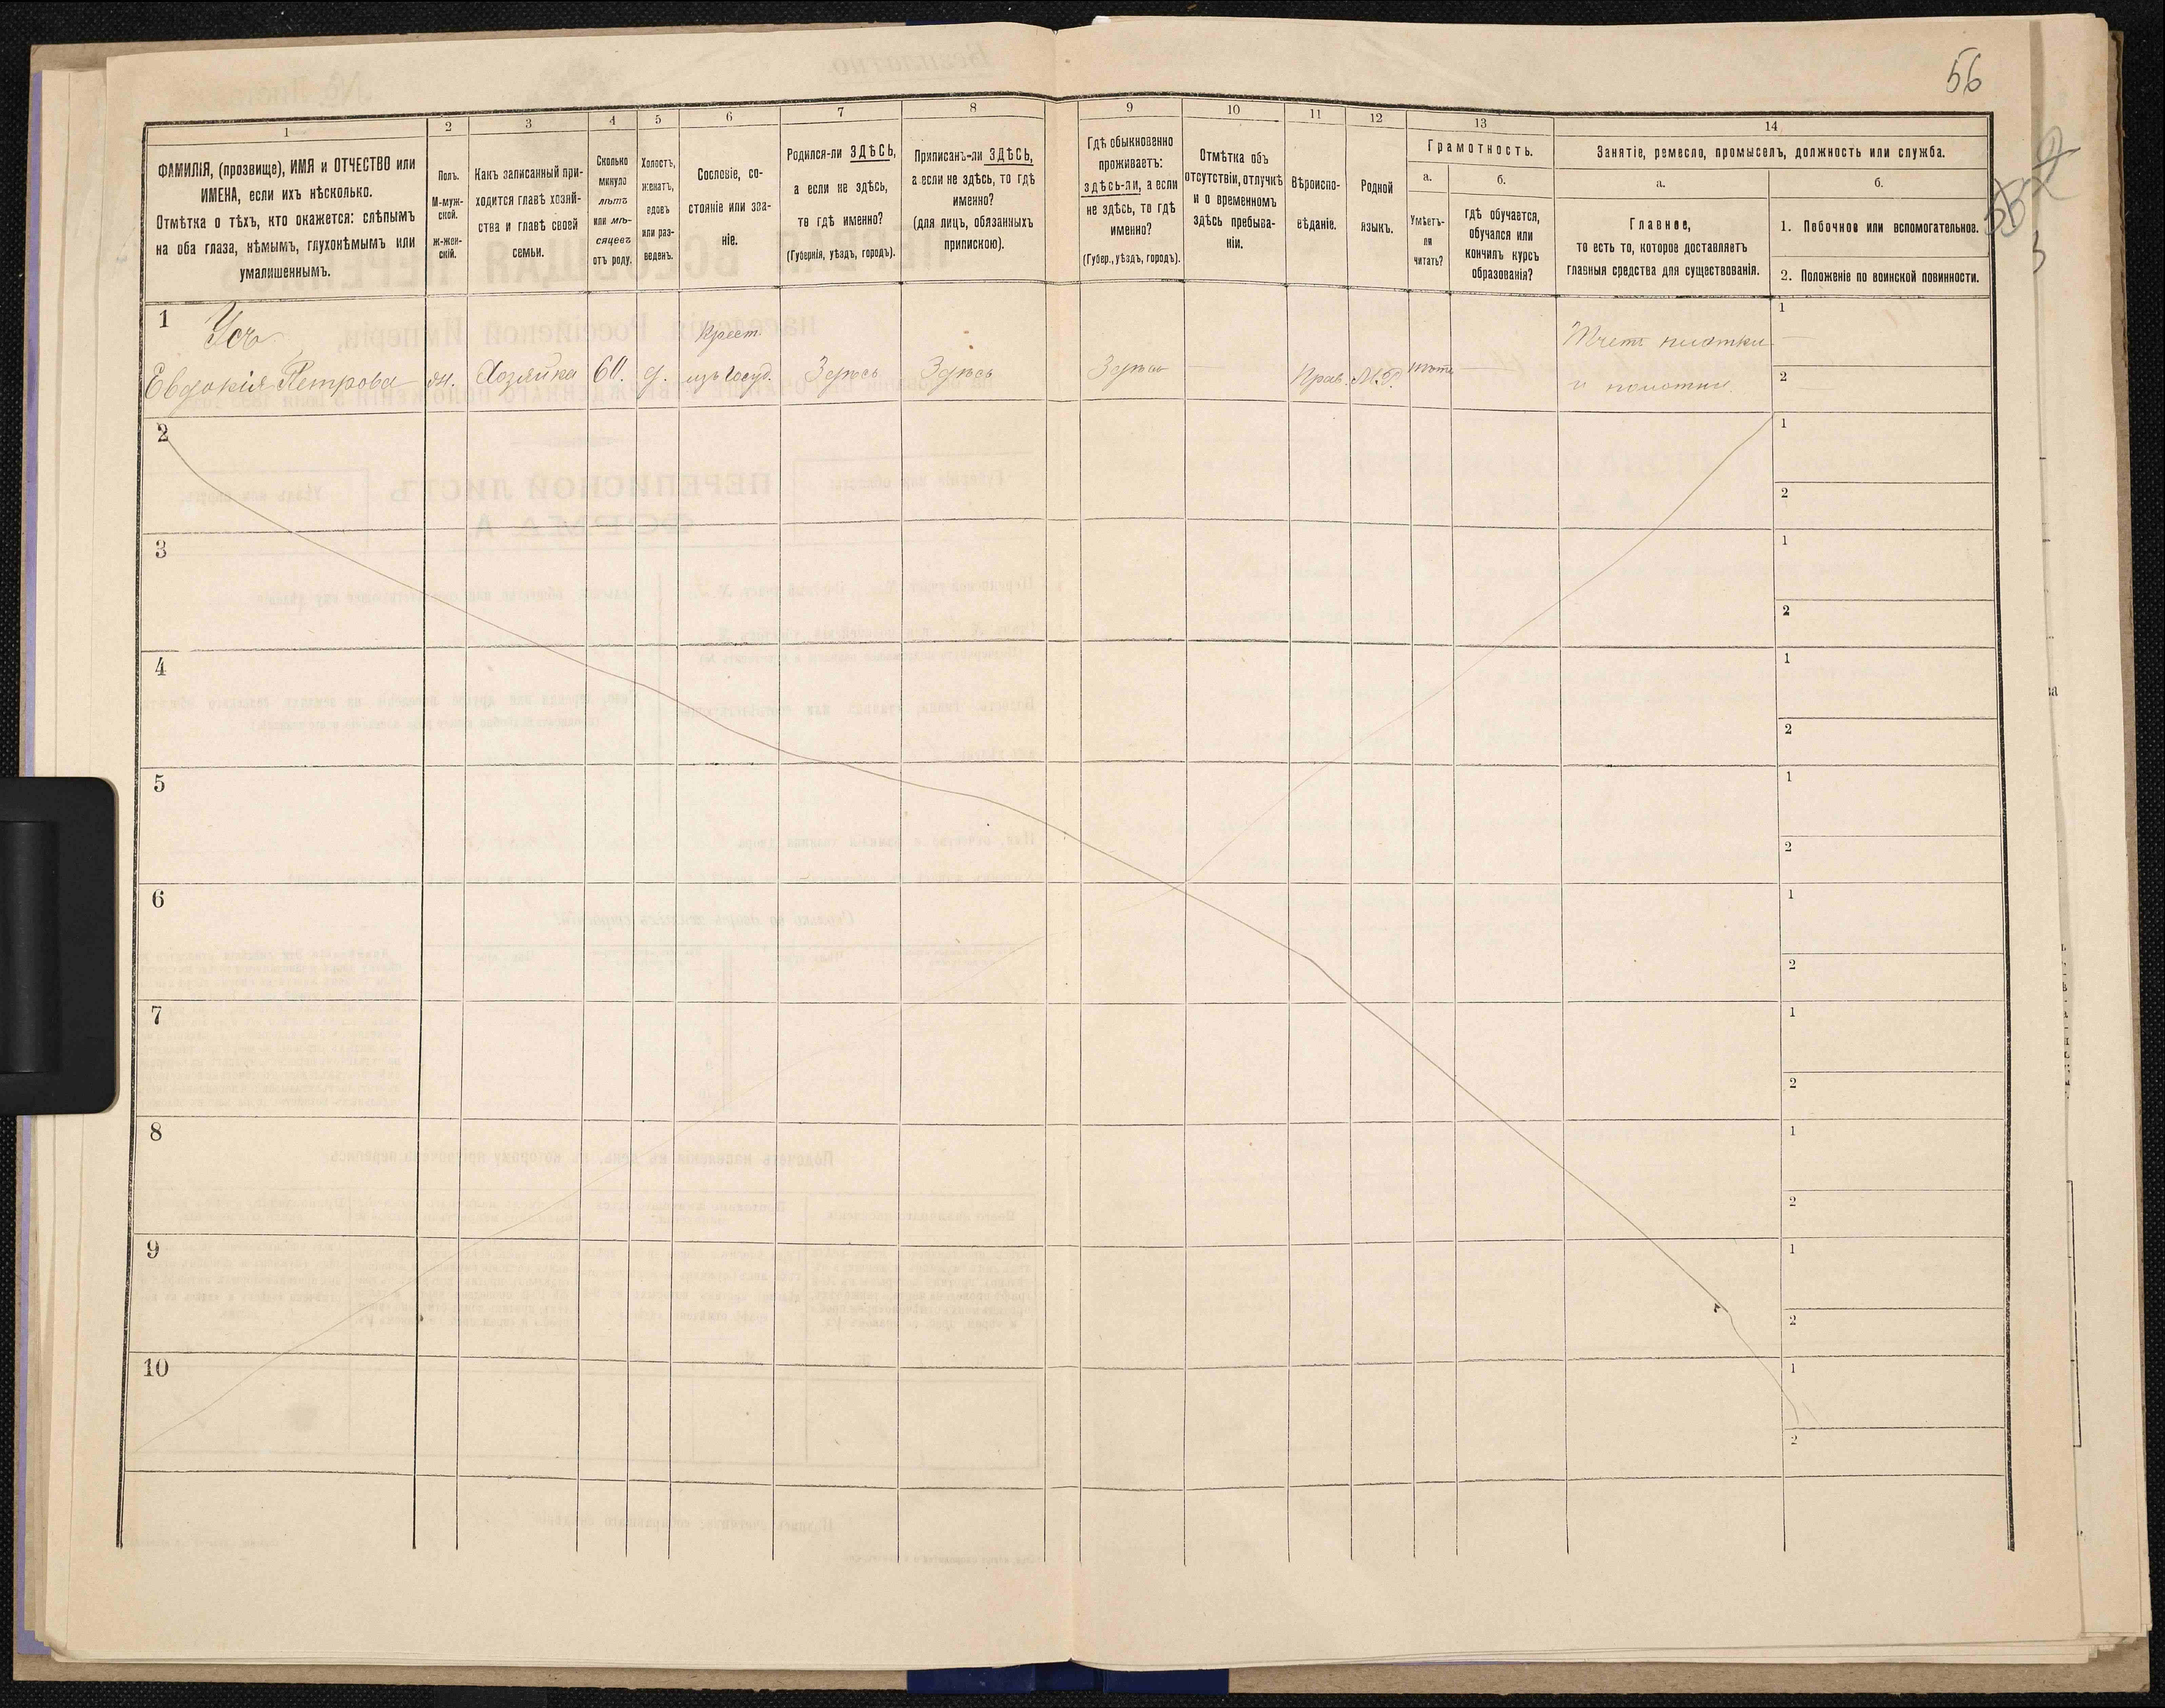 56
1
2
3
4
5
6
7
8
9
10
11
12
13
14
ФАМИЛІЯ, (прозвище), ИМЯ и ОТЧЕСТВО или
ИМЕНА, если ихъ нѣсколько.
Отмѣтка о тѣхъ, кто окажется: слѣпымъ
на оба глаза, нѣмымъ, глухонѣмымъ или
умалишеннымъ.
Полъ.
М-муж-
ской.
ж-жен-
скій.
Какъ записанный при-
ходится главѣ хозяй-
ства и главѣ своей
семьи.
Сколько
минуло
лѣтъ
или мѣ-
сяцевъ
отъ роду.
Холостъ,
женатъ,
вдовъ
или раз-
веденъ.
Сословіе, со-
стояніе или зва-
ніе.
Родился-ли ЗДѢСЬ,
а если не здѣсь,
то гдѣ именно?
(Губернія, уѣздъ, городъ).
Приписанъ-ли ЗДѢСЬ,
а если не здѣсь, то гдѣ
именно?
(для лицъ, обязанныхъ
припискою).
Гдѣ обыкновенно
проживаетъ:
здѣсь-ли, а если
не здѣсь, то гдѣ
именно?
(Губер., уѣздъ, городъ).
Отмѣтка объ
отсутствіи, отлучкѣ
и о временномъ
здѣсь пребыва-
ніи.
Вѣроиспо-
вѣданіе.
Родной
языкъ.
Грамотность.
а.
Умѣетъ-
ли
читать?
б.
гдѣ обучается,
обучался или
кончилъ курсъ
образованія?
Занятіе, ремесло, промыселъ, должность или служба.
а.
Главное,
то есть то, которое доставляетъ
главныя средства для существованія.
б.
1. Побочное или вспомогательное.
2. Положеніе по воинской повинности.
1
Усъ
Евдокія Петрова
ж.
Хозяйка
60.
д.
Крест.
изъ госуд.
Здѣсь
Здѣсь
Здѣсь
Прав.
М.Р.
нѣтъ
—
и полотни
1
2
2
1
2
3
1
2
4
1
2
5
1
2
6
1
2
7
1
2
8
1
2
9
1
2
10
1
2